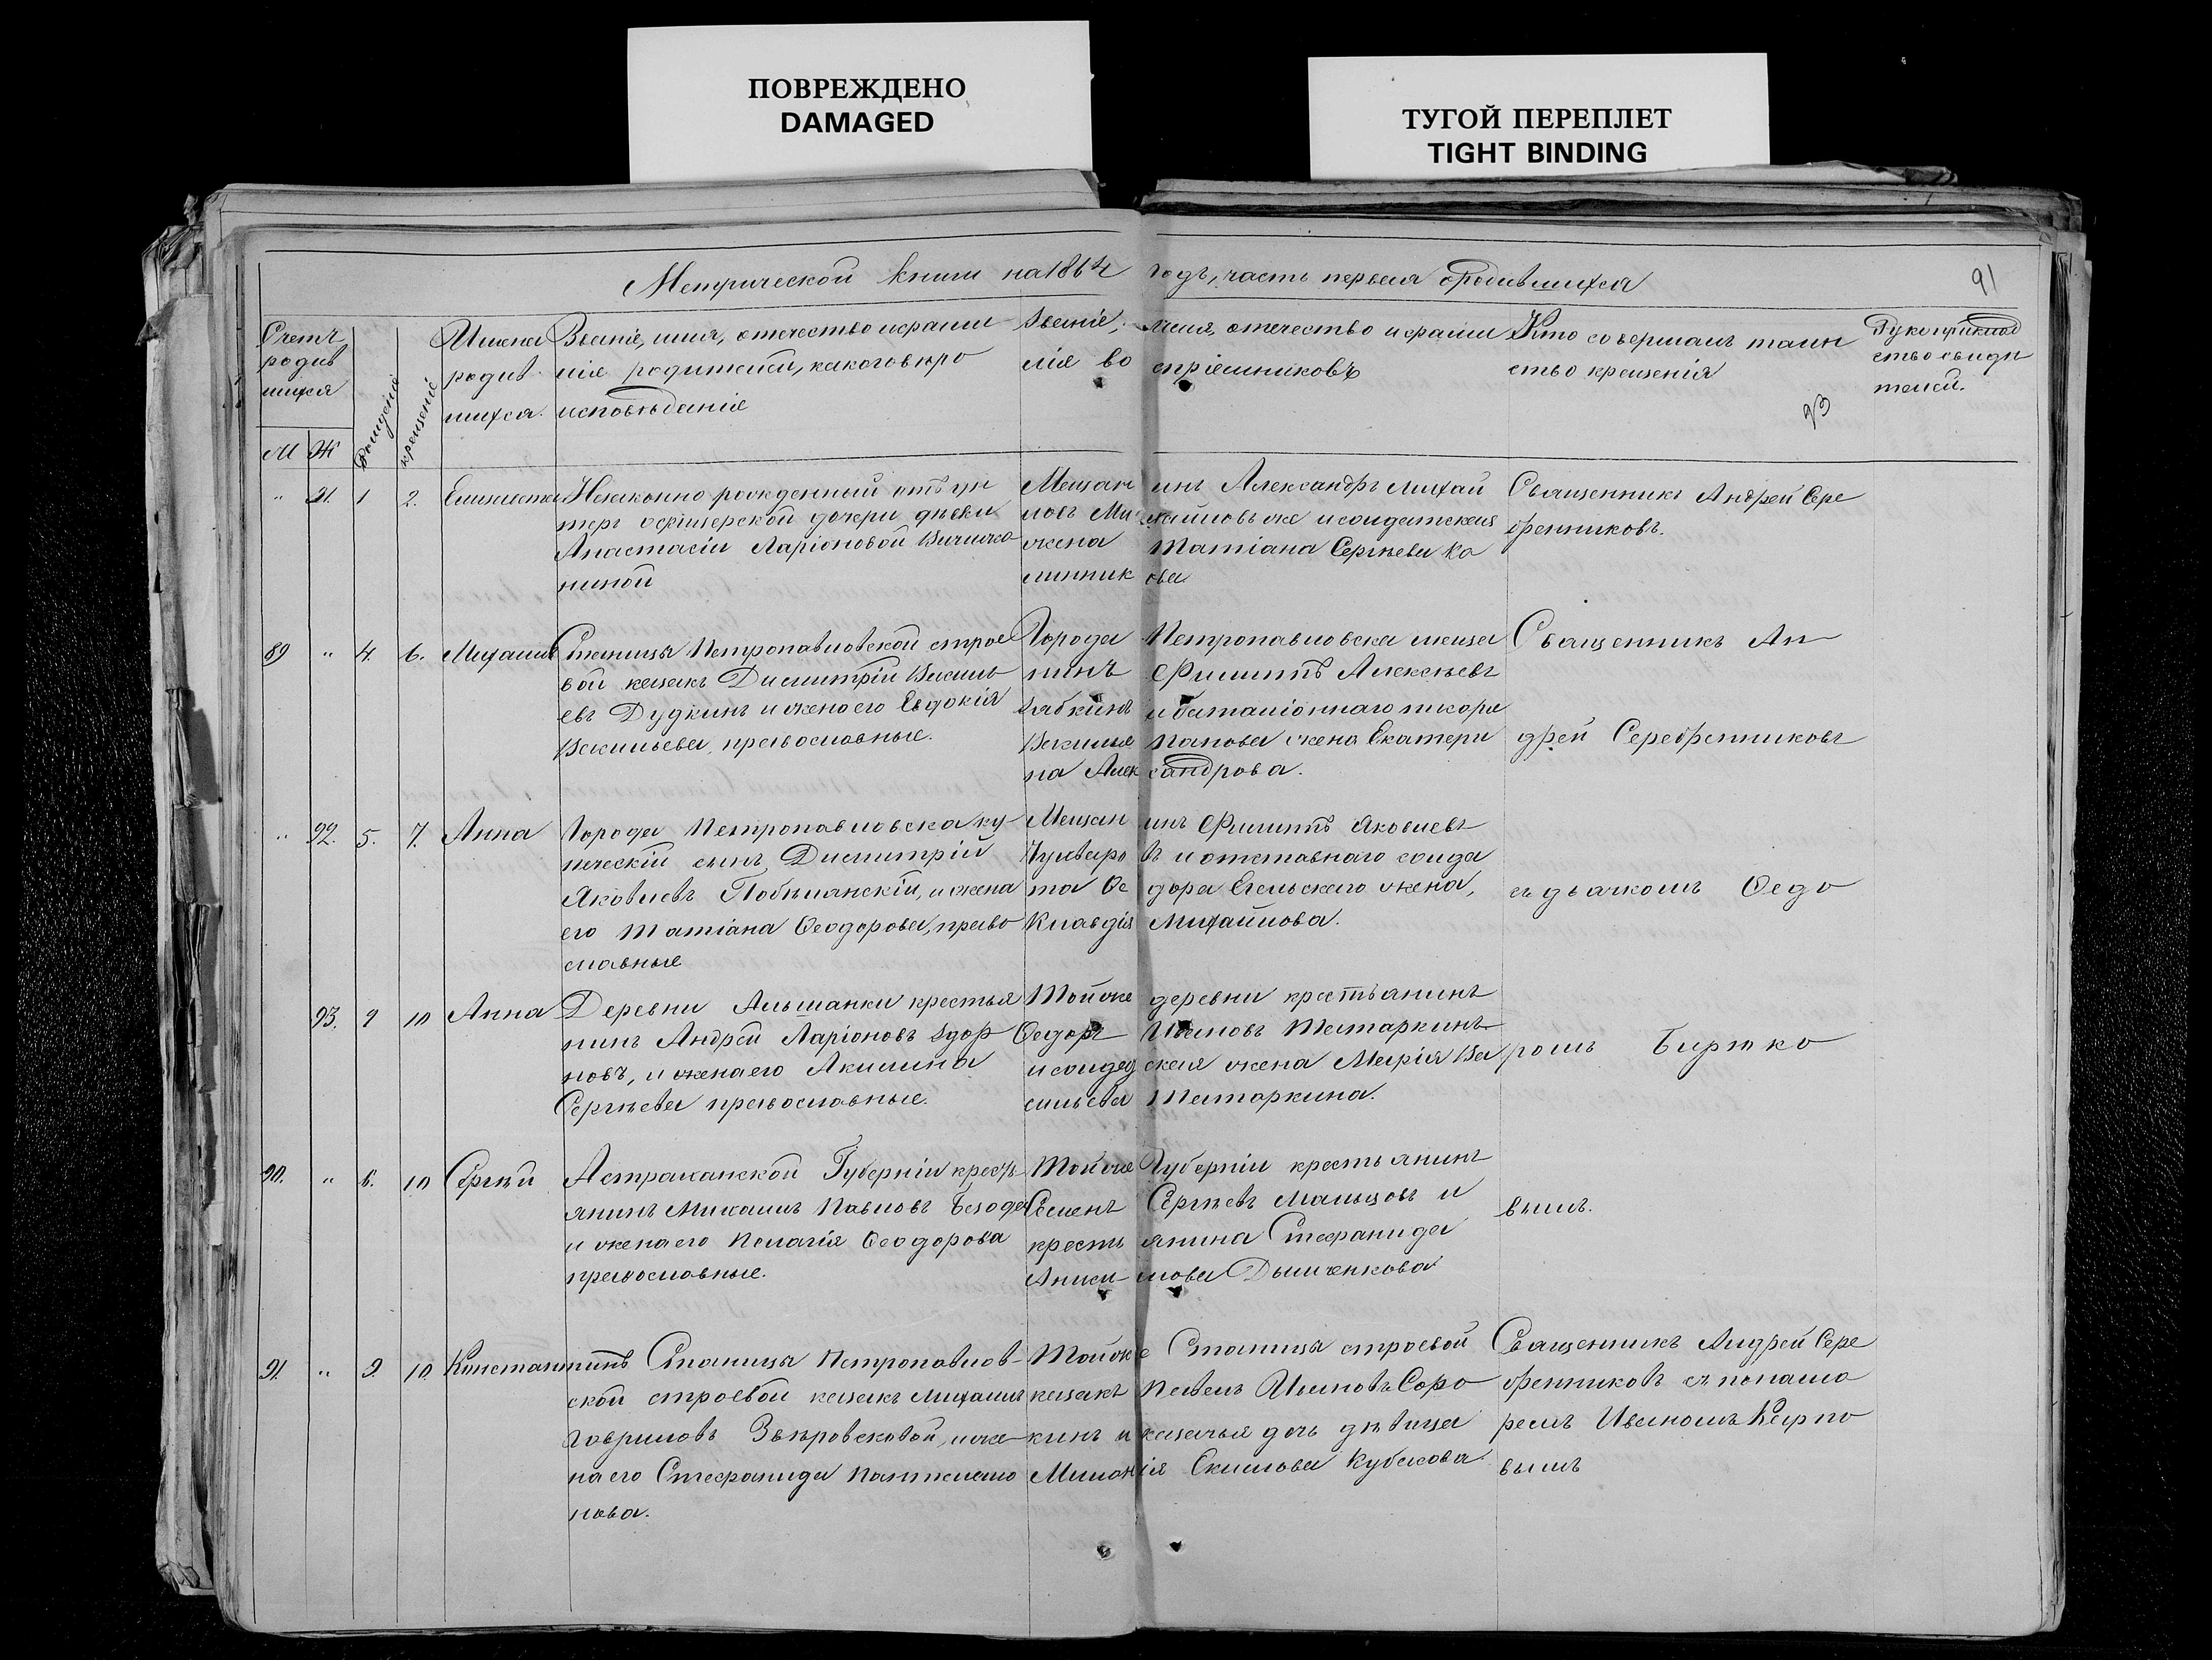 ПОВРЕЖДЕНО
DAMAGED
ТУГОЙ ПЕРЕПЛЕТ
TIGHT BINDING
Метрической книги на 1864 годъ, часть первая о родившихся
91
Счетъ
родив
шихся
М Ж
Рожденія
крещенія
Имена
родив
шихся.
Званіе, имя, отечество и фами
лія родителей, какого вѣро
исповѣданія
Званіе, имя, отечество и фами
лія воспріемниковъ
Кто совершалъ таин
ство крещенія
Рукоприклад
ство свидѣ
телей.
93
" 91. 1 2. Елисавета
Незаконно рожденный отъ ун
теръ офицерской дочери дѣвки
Анастасіи Ларіоновой
ниной
Мещанинъ Александръ Михай
ловъ же и солдатская
жена Татіана Сергѣева Ка
линникова
Священникъ Андрей Сере
бренниковъ.
89 " 4. 6. Михаилъ
Станицы Петропавловской строе
вой казакъ Димитрій Василь
евъ Дудкинъ и жена его Евдокія
Васильева, православные.
Города Петропавловска меща
нинъ Филиппъ Алексѣевъ
Зябкинъ и баталіоннаго
жена Екатери
на Александрова.
Священникъ Ан
дрей Серебренниковъ
" 92. 5. 7. Анна
Города Петропавловска ку
печескій сынъ Димитрій
Яковлевъ и жена
его Татіана Ѳеодорова, право
славные
Мещанинъ Филиппъ Яковлевъ
и отставнаго солда
та Ѳедора жена,
Клавдія Михайлова.
съ дьячкомъ Ѳедо
93. 9 10 Анна
Деревни Альшанки крестья
нинъ Андрей Ларіоновъ Здор
новъ, и жена его Акилина
Сергѣева православные.
Той же деревни крестьянинъ
Ѳедоръ Ивановъ Татаркинъ
и солдатская жена Марія Ва
сильева Татаркина.
ромъ Бирюко
90. " 8. 10 Сергѣй
Астраханской Губерніи кресть
янинъ Михаилъ Павловъ
и жена его Пелагія Ѳеодорова
православные.
Той же Губерніи крестьянинъ
Семенъ Сергѣевъ Мальцовъ и
крестьянина Стефанида
Аниси
мова Дьяченкова
вымъ.
91. " 9. 10. Константинъ
Станицы Петропавлов-
ской строевой казакъ Михаилъ
Гавриловъ и же
на его Стефанида Пантелеимо
нова.
Той же Станицы строевой
казакъ Павелъ Ивановъ Соро
кинъ и казачья дочь дѣвица
Екимова Кубасова
Священникъ Андрей Сере
бренниковъ съ понама
ремъ Иваномъ Карпо
вымъ